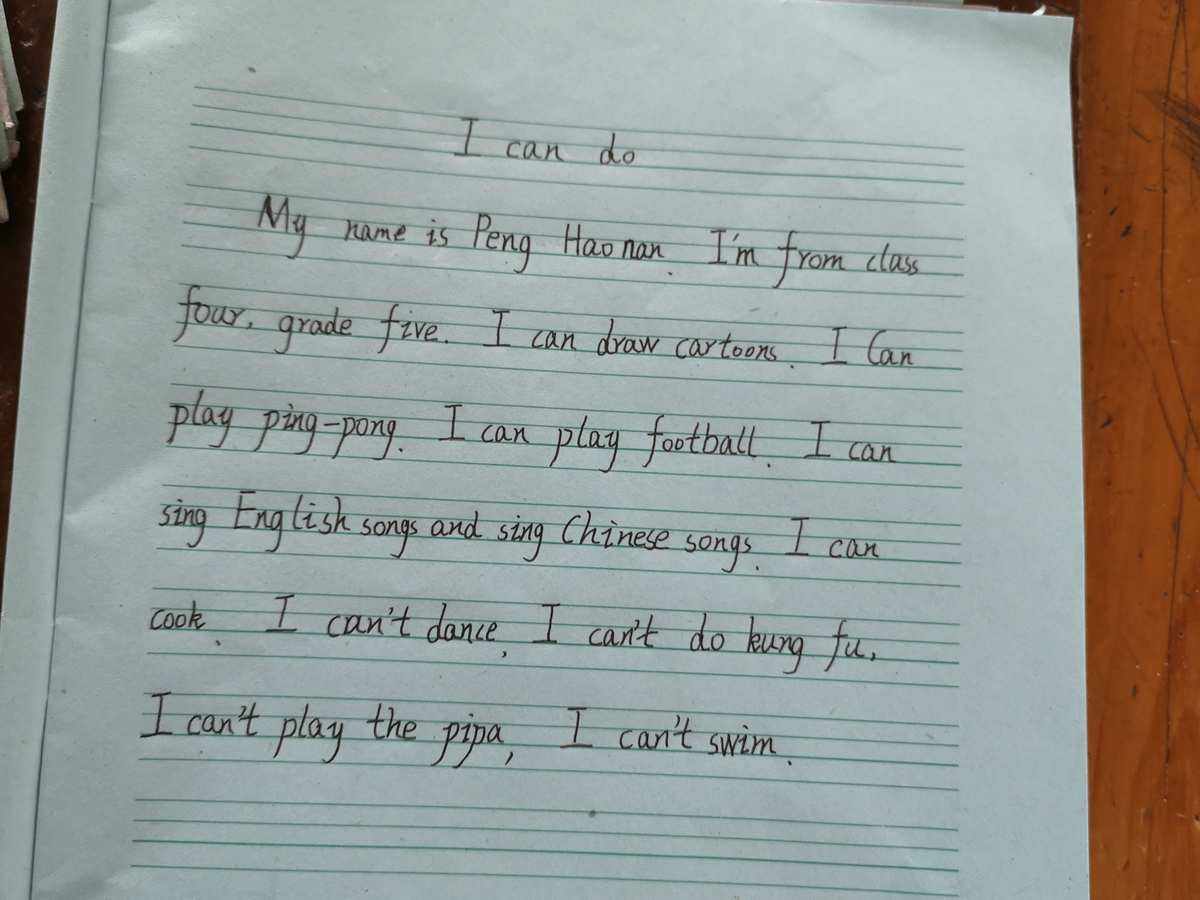 I can do
My name is Peng Haonan. I'm from class
four, grade five. I can draw cartoons. I Can
play ping-pong. I can play football. I can
sing English songs and sing Chinese songs. I can
cook. I can't dance, I can't do kung fu,
I can't play the pipa, I can't swim.